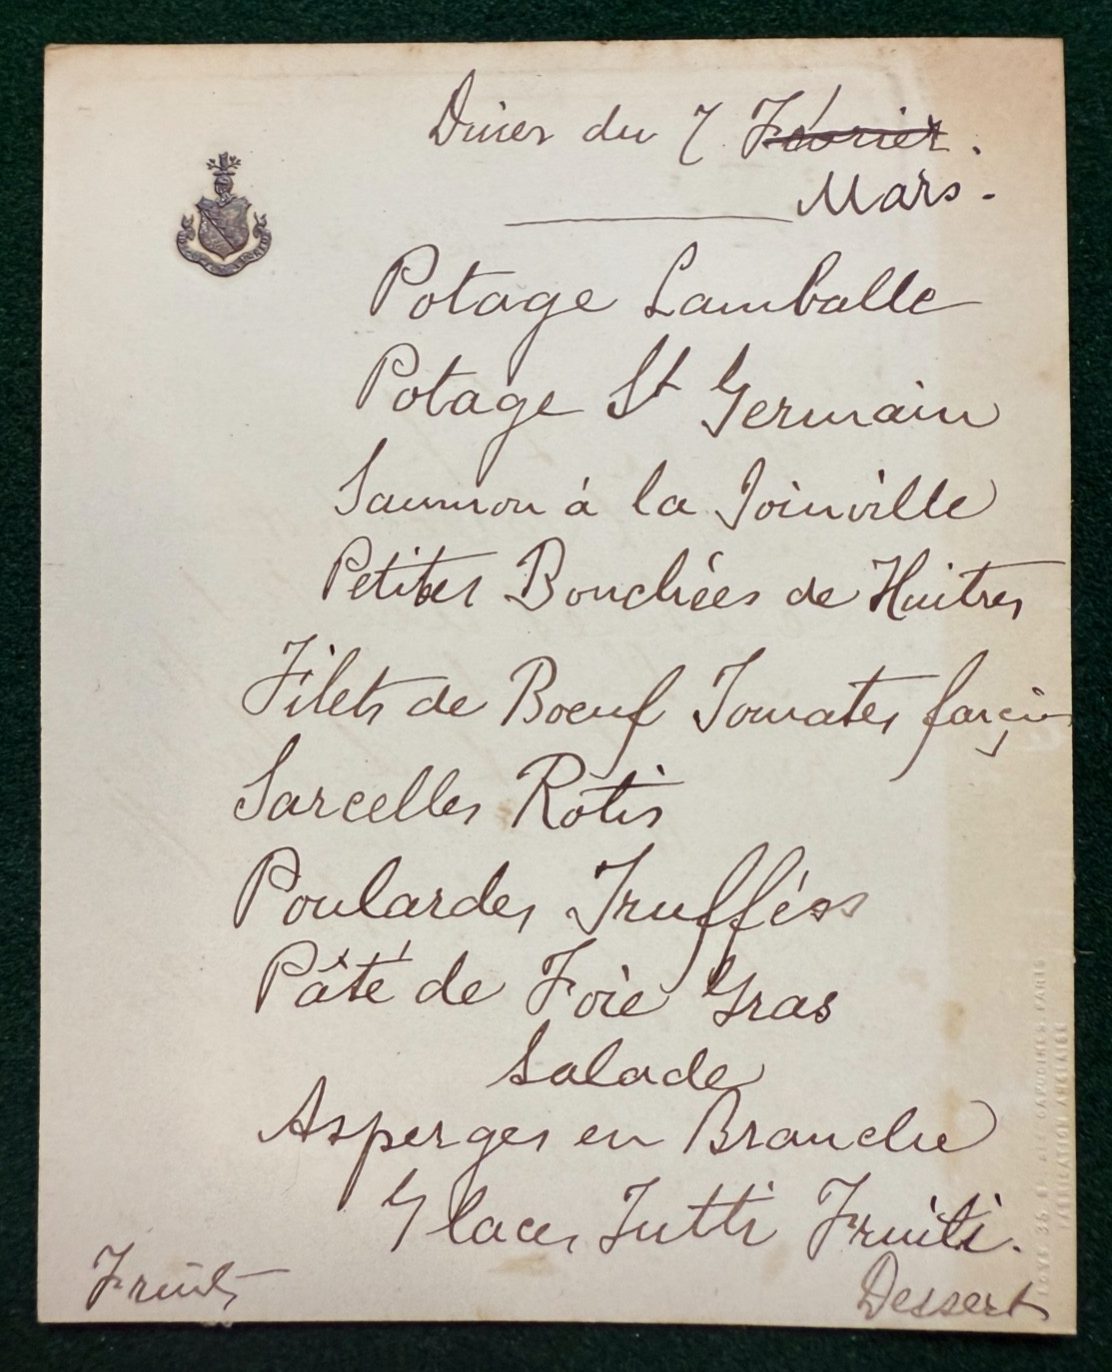 Diner du 7 Février.
Mars.
Potage Lamballe
Potage St Germain
Saumon à la Joinville
Petites Bouchées de Huitres
Filets de Boeuf Tomates farçies
Sarcelles Rotis
Poulardes Truffées
Pâté de Foie Gras
Salade
Asperges en Branche
Glaces Tutti Fruiti.
Fruits
Dessert